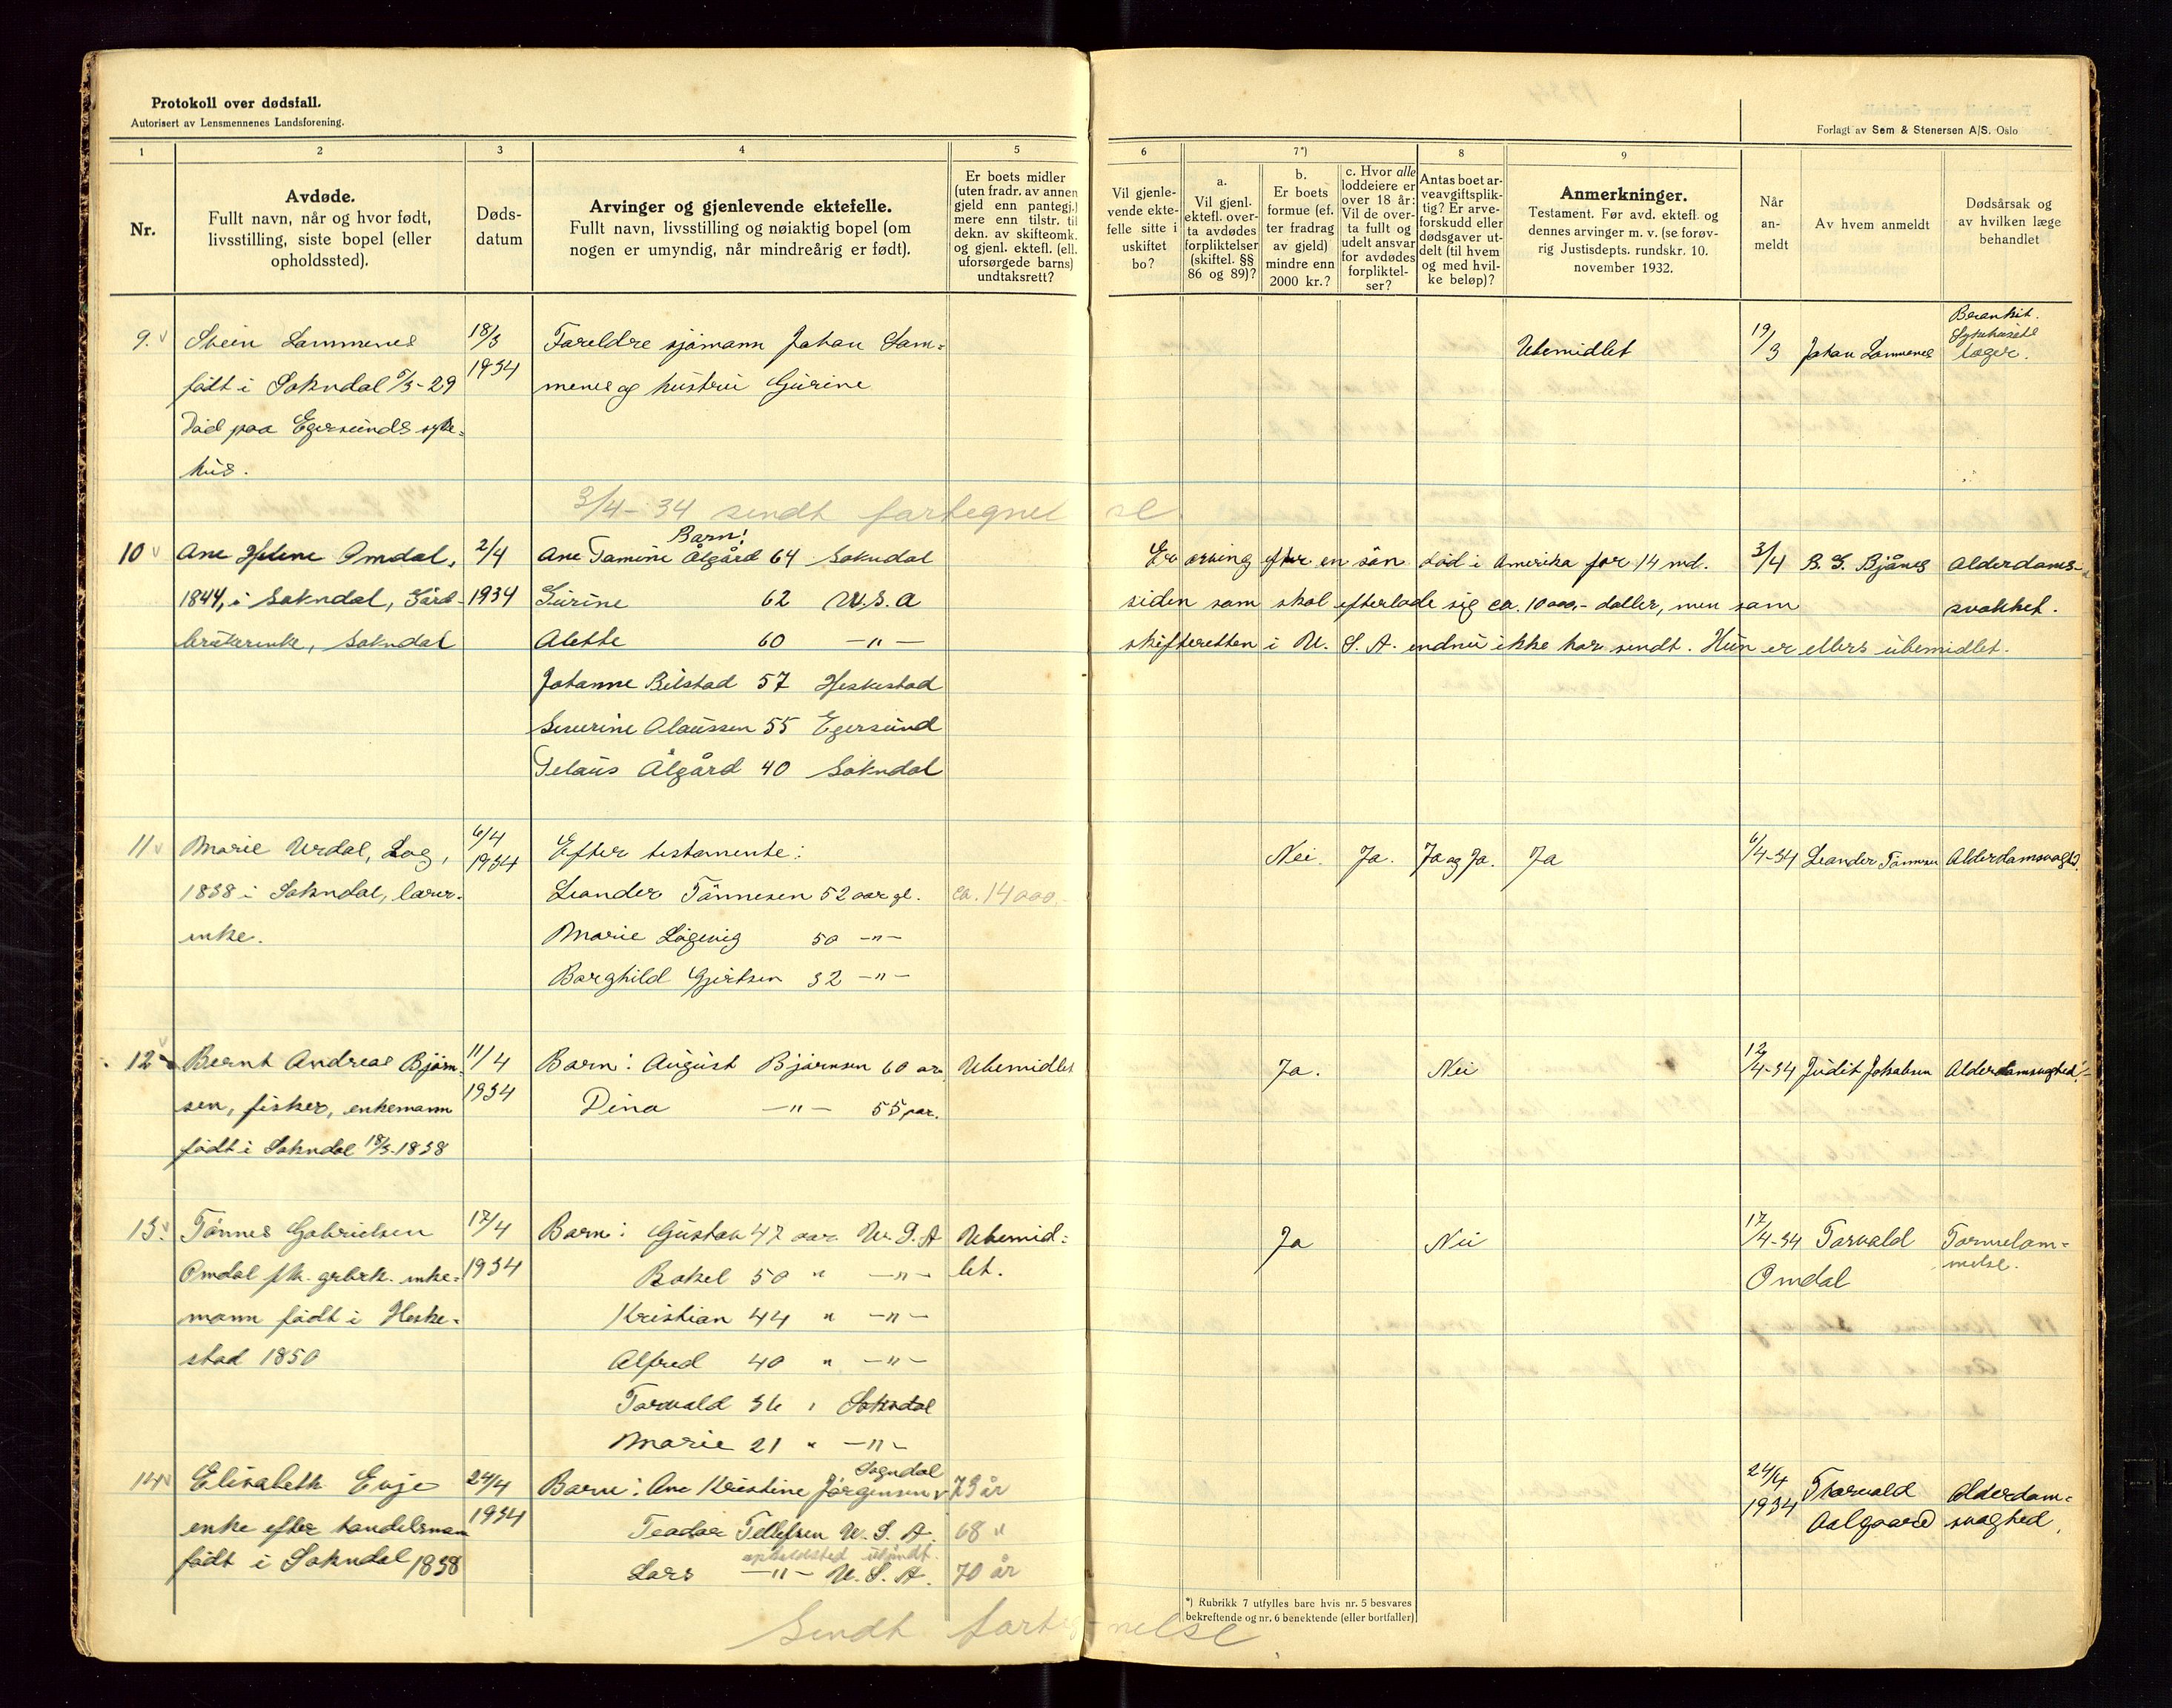 Protokoll over dødsfall.
Autorisert av Lensmennenes Landsforening.
Forlagt av Sem & Stenersen A/S. Oslo
1 2 3 4 5 6 7*) 8 9
Nr.
Avdøde.
Fullt navn, når og hvor født,
livsstilling, siste bopel (eller
opholdssted).
Døds-
datum
Arvinger og gjenlevende ektefelle.
Fullt navn, livsstilling og nøiaktig bopel (om
nogen er umyndig, når mindreårig er født).
Er boets midler
(uten fradr. av annen
gjeld enn pantegj.)
mere enn tilstr. til
dekn. av skifteomk.
og gjenl. ektefl. (ell.
uforsørgede barns)
undtaksrett?
Vil gjenle-
vende ekte-
felle sitte i
uskiftet
bo?
a.
Vil gjenl.
ektefl. over-
ta avdødes
forpliktelser
(skiftel. §§
86 og 89)?
b.
Er boets
formue (ef.
ter fradrag
av gjeld)
mindre enn
2000 kr.?
c. Hvor alle
loddeiere er
over 18 år:
Vil de over-
ta fullt og
udelt ansvar
for avdødes
forpliktel-
ser?
Antas boet ar-
veavgiftsplik-
tig? Er arve-
forskudd eller
dødsgaver ut-
delt (til hvem
og med hvil-
ke beløp)?
Anmerkninger.
Testament. Før avd. ektefl. og
dennes arvinger m. v. (se forøv-
rig Justisdepts. rundskr. 10.
november 1932.
Når
an-
meldt
Av hvem anmeldt
Dødsårsak og
av hvilken læge
behandlet
9. Stein Lammenes
født i Sokndal 5/3-29
Død paa Egersunds syke-
hus.
18/3
1934
Foreldre sjømann Johan Lam-
menes og hustru Gurine
Ubemidlet
19/3 Johan Lammenes
Sykehusets
læger.
3/4-34 sendt fortegnelse
10 Ane Helene Omdal,
1844, i Sokndal, Gård-
brukerenke, Sokndal
2/4
1934
Barn:
Ane Tomine Ålgård 64 Sokndal
Gurine 62 U.S.A
Alette 60 -"-
Johanne Bilstad 57 Heskestad
Severine Olaussen 55 Egersund
Ålgård 40 Sokndal
Er arving efter en søn død i Amerika for 14 md.
siden som skal efterlade sig ca. 10000,- dollar, men som
skifteretten i U. S. A. endnu ikke har sendt. Hun er ellers ubemidlet.
3/4 B. G. Bjånes
Alderdoms-
svakhet.
11 Marie Urdal, Log,
1838 i Sokndal, lærer-
enke.
6/4
1934
Efter testamente:
Leander Tönnesen 52 aar gl.
Marie Løgevig 50 -"-
Borghild Gjertsen 32 -"-
ca. 14000.-
Nei. Ja. Ja og Ja. Ja
6/4-34 Leander Tönnesen Alderdomsvaghed.
12 Bernt Andreas Bjørn-
sen, fisker, enkemann
født i Sokndal 18/3-1838
11/4
1934
Barn: August Bjørnsen 60 aar
Dina -"- 55 aar.
Ubemidlet
Ja. Nei
12/4-34 Judit Jakobsen Alderdomsvaghed.
13. Tønnes Gabrielsen
Omdal fh. grbrk. enke-
mann født i Heske-
stad 1850
17/4
1934
Barn: Gustav 47 aar U. S. A
Bokel 50 " -"-
Kristian 44 " -"-
Alfred 40 " -"-
Torvald 36 " Sokndal
Marie 21 " -"-
Ubemid-
let.
Ja Nei
17/4-34 Torvald
Omdal
14 Elisabeth Evje
enke efter handelsman
født i Sokndal 1838
24/4
1934
Sogndal
Barn: Ane Kristine Jørgensen 73 år
Teodor Tellefsen U. S. A. 68 "
opholdsted ukjendt.
Lars -"- U. S. A. 70 år
24/4
1934
Thorvald
Aalgaard
Alderdom-
svaghed.
*) Rubrikk 7 utfylles bare hvis nr. 5 besvares
bekreftende og nr. 6 benektende (eller bortfaller)
Sendt fortegnelse